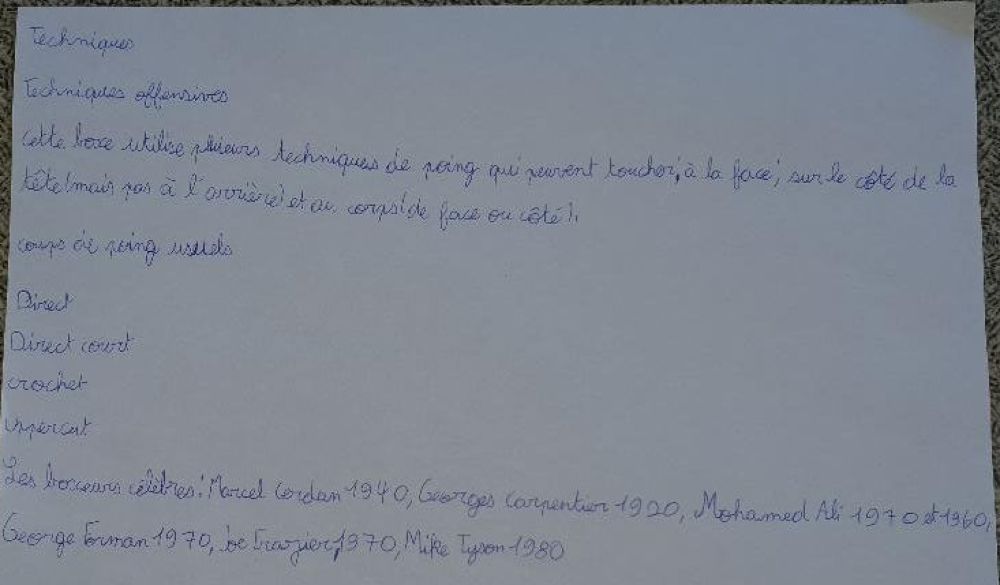 Techniques
Techniques offensives
cette boxe utilise plusieurs techniques de poing qui peuvent toucher, à la face, sur le côté de la
tête (mais pas à l'arrière) et au corps (de face ou côté).
coups de poing usuels
Direct
Direct court
crochet
uppercut
Les boxeurs célèbres: Marcel Cerdan 1940, Georges Carpentier 1920, Mohamed Ali 1970 et 1960,
George Forman 1970, Joe Frazier 1970, Mike Tyson 1980